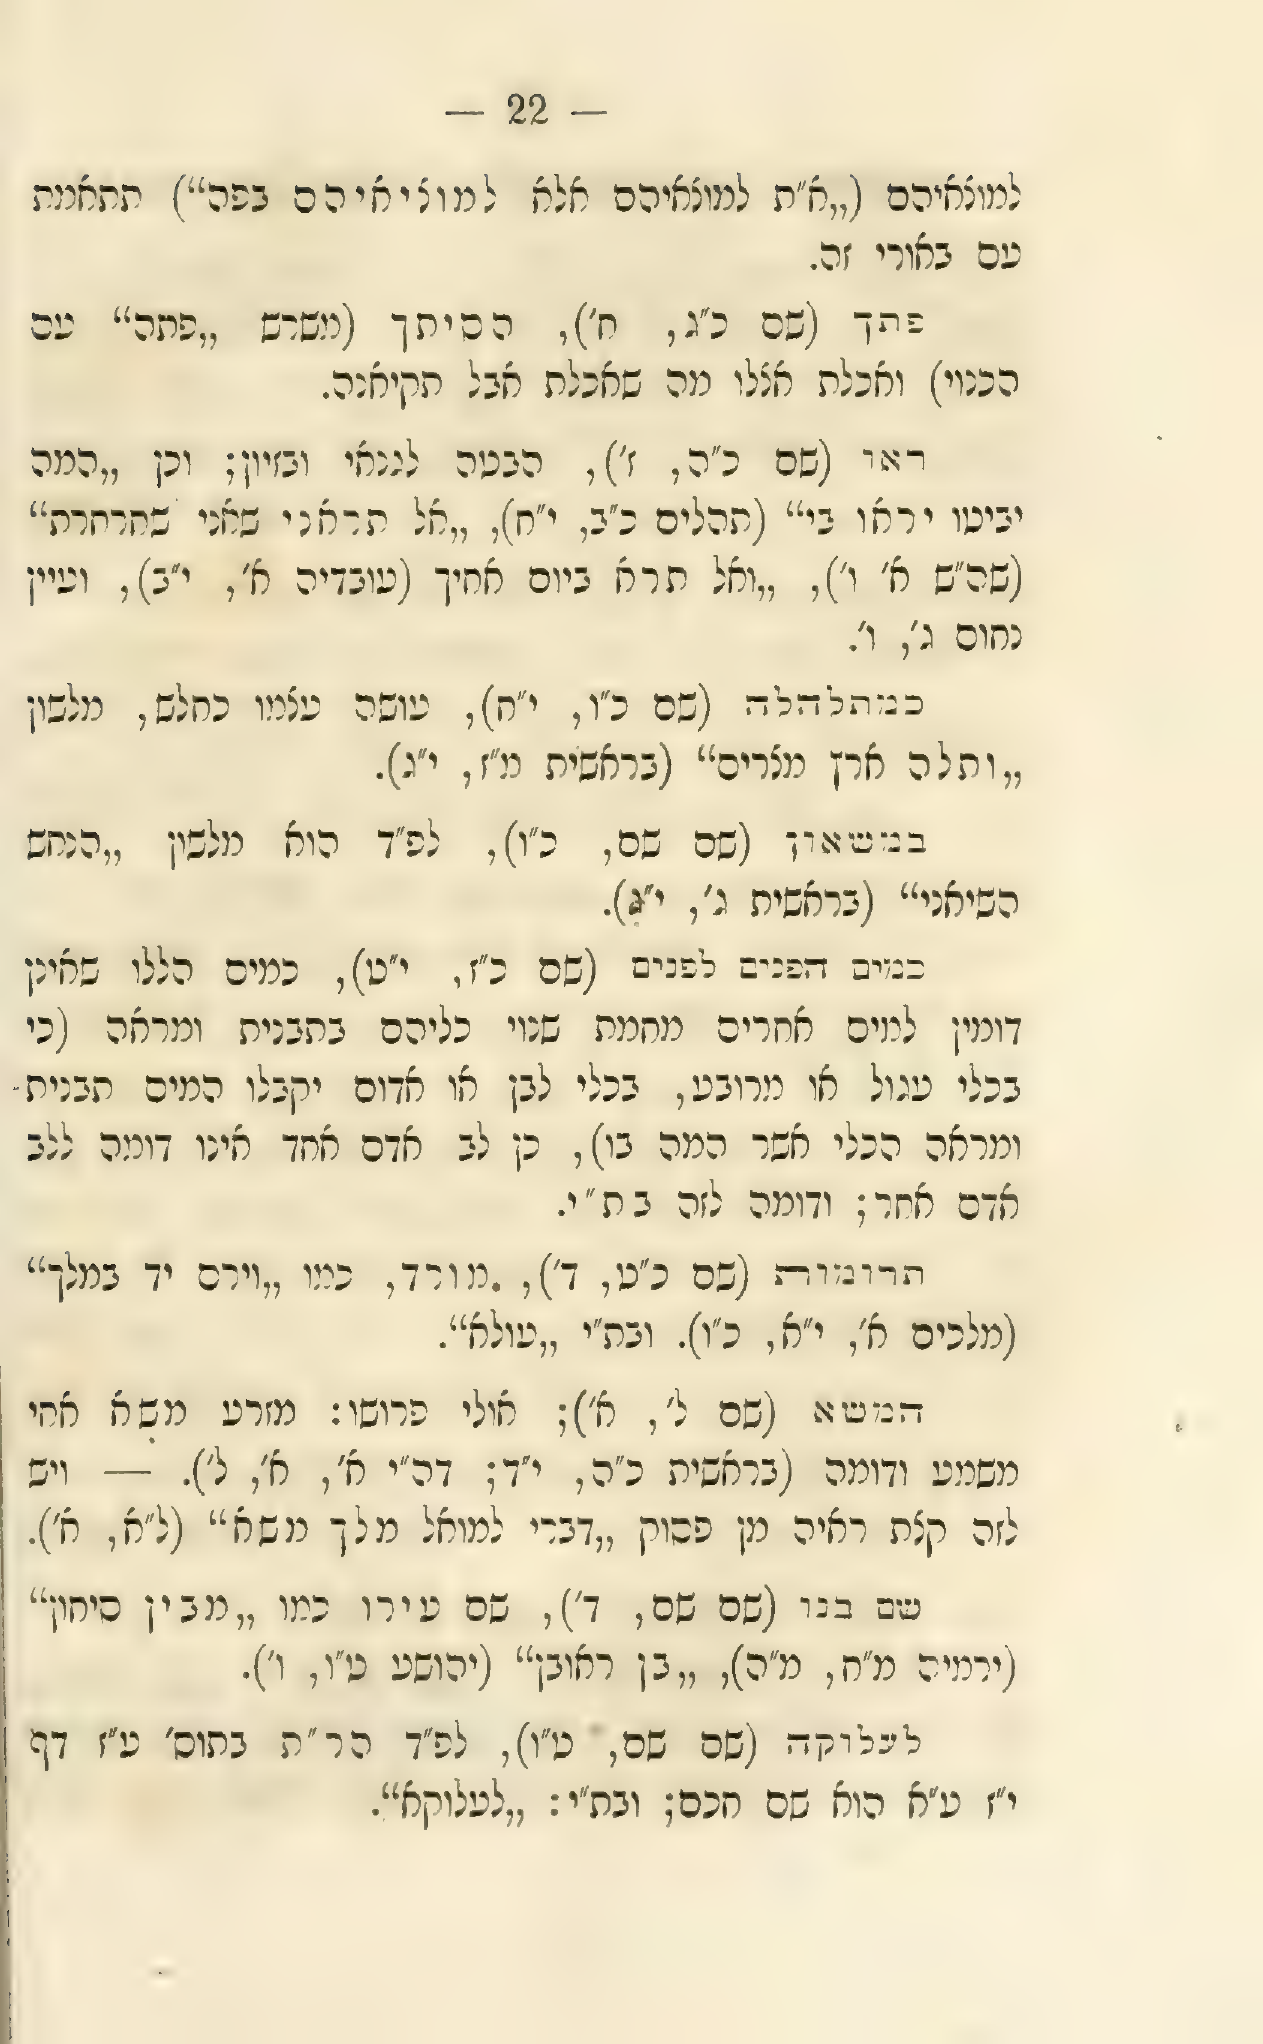 — 22 —
למוצאיהם („א"ת למוצאיהם אלא למוציאיהם בפה“) תתאמת
עם באורי זה.
פתך (שם כ"ג, ח'), הסיתך (משרש „פתה“ עם
הכנוי) ואכלת אצלו מה שאכלת אבל תקיאנה.
ראו (שם כ"ה, ז'), הבטה לגנאי ובזיון; וכן „המה
יביטו יראו בי“ (תהלים כ"ב, י"ח), „אל תראני שאני שחרחרת“
(שה"ש א' ו'), „ואל תרא ביום אחיך (עובדיה א', י"ב), ועיין
נחום ג', ו'.
כמתלהלה (שם כ"ו, י"ח), עושה עצמו כחלש, מלשון
„ותלה ארץ מצרים“ (בראשית מ"ז, י"ג).
במשאון (שם שם, כ"ו), לפ"ד הוא מלשון „הנחש
השיאני“ (בראשית ג', י"ג).
כמים הפנים לפנים (שם כ"ז, י"ט), כמים הללו שאינן
דומין למים אחרים מחמת שנוי כליהם בתבנית ומראה (כי
בכלי עגול או מרובע, בכלי לבן או אדום יקבלו המים תבנית־
ומראה הכלי אשר המה בו), כן לב אדם אחד אינו דומה ללב
אדם אחר; ודומה לזה בת"י.
תרומות (שם כ"ט, ד'), מורד, כמו „וירם יד במלך“
(מלכים א', י"א, כ"ו). ובת"י „עולא“.
המשא (שם ל', א'); אולי פרושו: מזרע משא אחי
משמע ודומה (בראשית כ"ה, י"ד; דה"י א', א', ל'). — ויש
לזה קצת ראיה מן פסוק „דברי למואל מלך משא“ (ל"א, א').
שם בנו (שם שם, ד'), שם עירו כמו „מבין סיחון“
(ירמיה מ"ח, מ"ה), „בן ראובן“ (יהושע ט"ו, ו').
לעלוקה (שם שם, ט"ו), לפ"ד הר"ת בתוס' ע"ז דף
י"ז ע"א הוא שם חכם; ובת"י: „לעלוקא“.